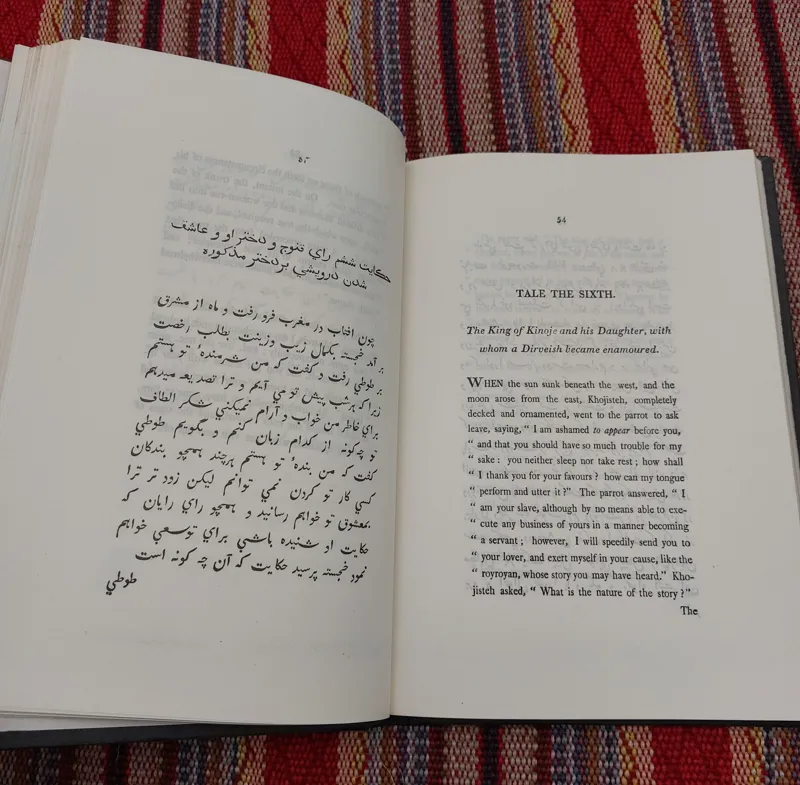 حکایت ششم راي قنوج و دختر او و عاشق
شدن درویشي بر دختر مذکوره
چون افتاب در مغرب فرو رفت و ماه از مشرق
بر آمد خجسته بکمال زیب وزینت بطلب رخصت
بر طوطي رفت و گفت که من شرمندهٔ تو هستم
زیرا که هر شب پیش تو مي آیم و ترا تصدیعه میدهم
براي خاطر من خواب و آرام نمیکني شکر الطاف
تو چه گونه از کدام زبان کنم و بگویم طوطي
گفت که من بندهٔ تو هستم هرچند همچو بندگان
کسي کار تو کردن نمي توانم لیکن زود تر ترا
بمعشوق تو خواهم رسانید و همچو راي رایان که
حکایت او شنیده باشي براي تو سعي خواهم
نمود خجسته پرسید حکایت که آن چه گونه است
طوطي
54
TALE THE SIXTH.
The King of Kinoje and his Daughter, with
whom a Dirveish became enamoured.
WHEN the sun sunk beneath the west, and the
moon arose from the east, Khojisteh, completely
decked and ornamented, went to the parrot to ask
leave, saying, “ I am ashamed to appear before you,
“ and that you should have so much trouble for my
“ sake : you neither sleep nor take rest ; how shall
“ I thank you for your favours ? how can my tongue
“ perform and utter it ?” The parrot answered, “ I
“ am your slave, although by no means able to exe-
“ cute any business of yours in a manner becoming
“ a servant ; however, I will speedily send you to
“ your lover, and exert myself in your cause, like the
“ royroyan, whose story you may have heard.” Kho-
jisteh asked, “ What is the nature of the story ?”
The